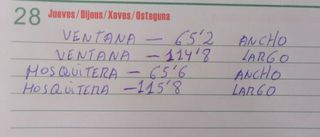 28 Jueves/Dijous/Xoves/Osteguna
VENTANA - 65'2 ANCHO
VENTANA - 114'8 LARGO
MOSQUITERA - 65'6 ANCHO
MOSQUITERA - 115'8 LARGO